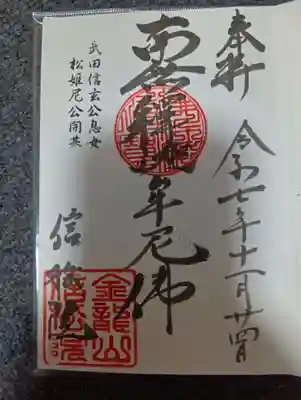 奉拝
令和七年十一月廿四日
南無釋迦牟尼佛
武田信玄公息女
松姫尼公開基
信松院
金龍山
信松院